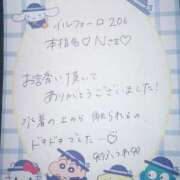 イルフォーロ206
本指名♡Nさま♡
お誘い頂いて
ありがとうございました!
水着の上から触られるの
ドキドキでした〜♡